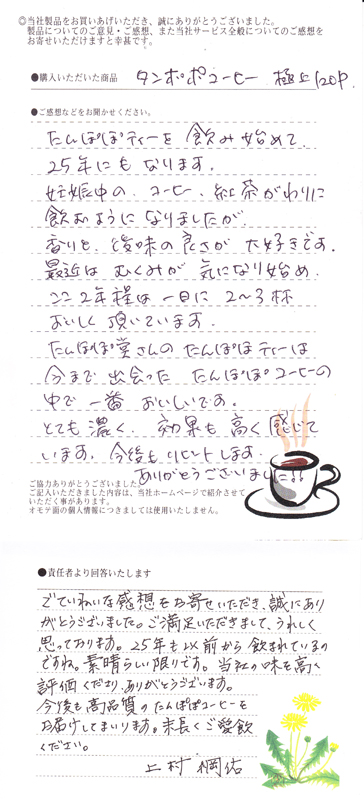 ◎当社製品をお買いあげいただき、誠にありがとうございました。
製品についてのご意見・ご感想、また当社サービス全般についてのご感想を
お寄せいただけますと幸甚です。
●購入いただいた商品 タンポポコーヒー 極上120P
●ご感想などをお聞かせください。
たんぽぽティーを 飲み始めて、
25年にもなります。
妊娠中の、コーヒー、紅茶がわりに
飲むようになりましたが、
香りと、後味の良さが 大好きです。
最近は むくみが 気になり始め、
ここ2年程は 一日に 2〜3杯
おいしく 頂いています。
たんぽぽ堂さんの たんぽぽティーは
今まで 出会った たんぽぽコーヒーの
中で 一番 おいしいです。
とても 濃く、効果も 高く 感じて
います。今後も リピートします。
ありがとうございました!!
ご協力ありがとうございました。
ご記入いただきました内容は、当社ホームページで紹介させて
いただく事があります。
オモテ面の個人情報につきましては使用いたしません。
●責任者より回答いたします
ごていねいな感想をお寄せいただき、誠にあり
がとうございました。ご満足いただきまして、うれしく
思っております。25年も以前から飲まれているの
ですね。素晴らしい限りです。当社の味を高く
評価くださり、ありがとうございます。
今後も高品質のたんぽぽコーヒーを
お届けしてまいります。末長くご愛飲
ください。
上村 綱佑